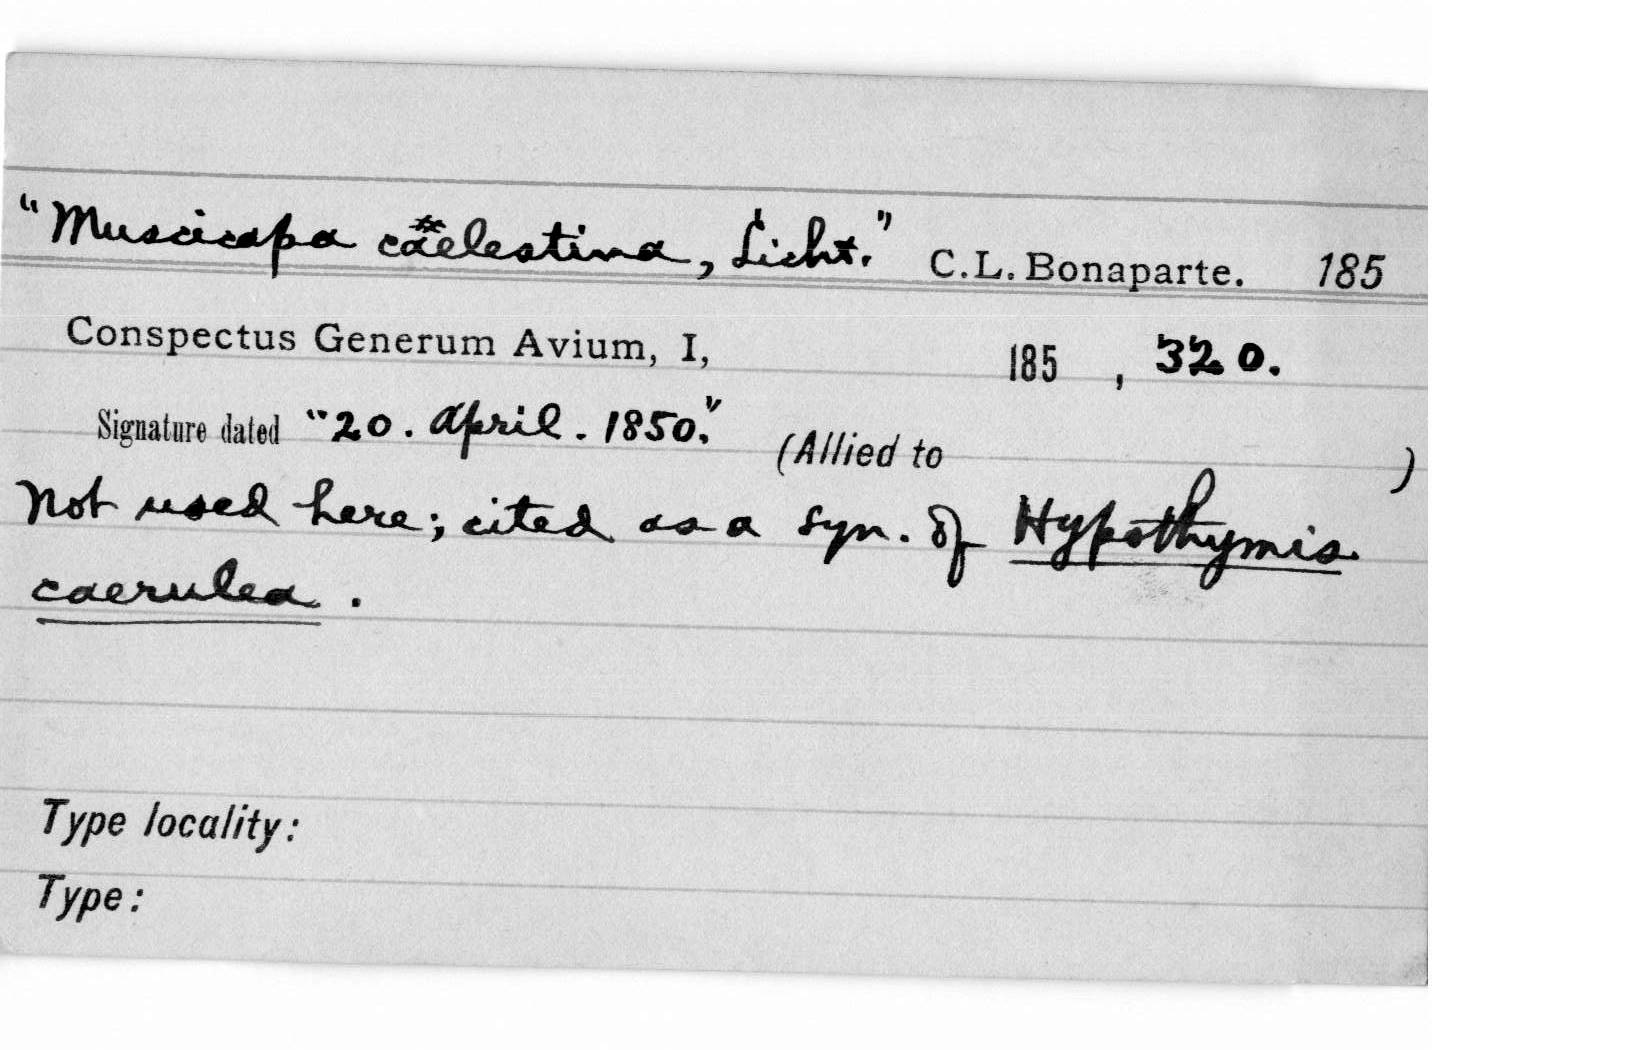 "Muscicapa caelestina, Licht." C.L. Bonaparte. 185
Conspectus Generum Avium, I, 185 , 320.
Signature dated "20. April. 1850." (Allied to )
Not used here; cited as a syn. of Hypothymis
caerulea.
Type locality:
Type: